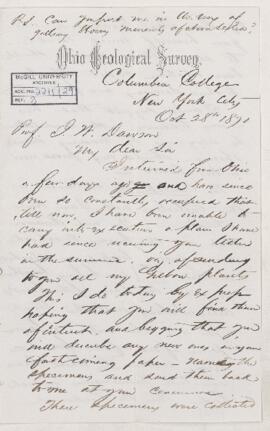 P.S. Can you
Ohio Geological Survey.
McGILL UNIVERSITY
ARCHIVES
ACC. NO. 2211/29
REF. 2
Columbia College
New York City
Oct 28th 1871
Prof. J. W. Dawson
My dear Sir
I returned from Ohio
a few days ago and have since
been so constantly occupied that
till now, I have been unable to
carry into execution a plan I have
had since receiving your letter
in the summer of sending
to you all my Gilboa plants
This I do today by Express
hoping that you will find them
of interest and begging that you
will describe any new ones in your
forthcoming paper - name the
specimens and send them back
to me at your convenience
These specimens were collected